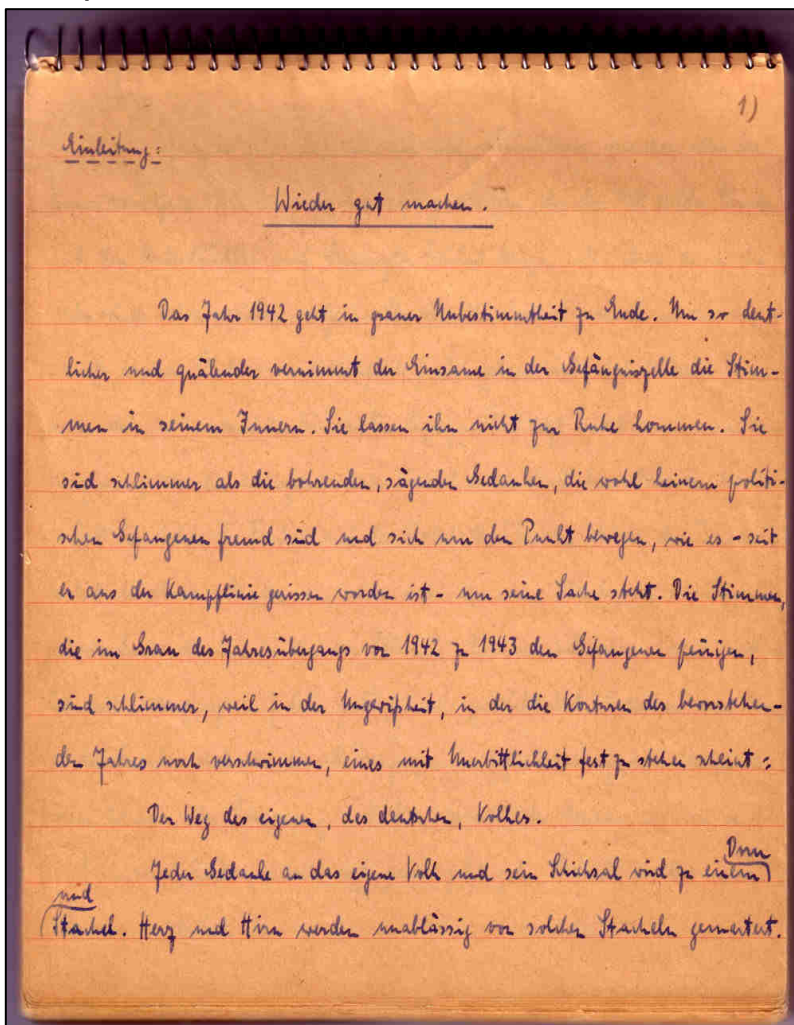 1)
Einleitung:
Wieder gut machen.
Das Jahr 1942 geht in grauer Unbestimmtheit zu Ende. Um so deut-
licher und quälender vernimmt der Einsame in der Gefängniszelle die Stim-
men in seinem Innern. Sie lassen ihn nicht zur Ruhe kommen. Sie
sind schlimmer als die bohrenden, sägenden Gedanken, die wohl keinem politi-
schen Gefangenen fremd sind und sich um den Punkt bewegen, wie es - seit
er aus der Kampflinie gerissen worden ist - um seine Sache steht. Die Stimmen,
die im Grau des Jahresübergangs von 1942 zu 1943 den Gefangenen peinigen,
sind schlimmer, weil in der Ungewißheit, in der die Konturen des bevorstehen-
den Jahres noch verschwimmen, eines mit Unerbittlichkeit fest zu stehen scheint:
Der Weg des eigenen, des deutschen, Volkes.
Jeder Gedanke an das eigene Volk und sein Schicksal wird zu einem Dorn
und Stachel. Herz und Hirn werden unablässig von solchen Stacheln gemartert.